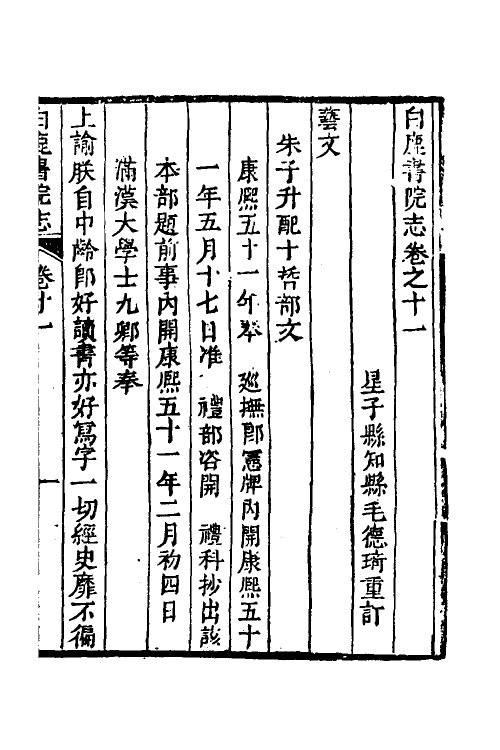 白鹿書院志卷之十一
星子縣知縣毛德琦重訂
藝文
朱子升配十哲部文
康熙五十一年奉　巡撫郎憲牌內開康熙五十
一年五月十七日准　禮部咨開　禮科抄出該
本部題前事內開康熙五十一年二月初四日
滿漢大學士九卿等奉
上諭朕自中齡卽好讀書亦好寫字一切經史靡不徧
白鹿書院志　卷十一　一